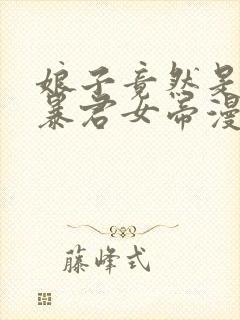 娘子竟然是
暴君女帝漫
藤峰式